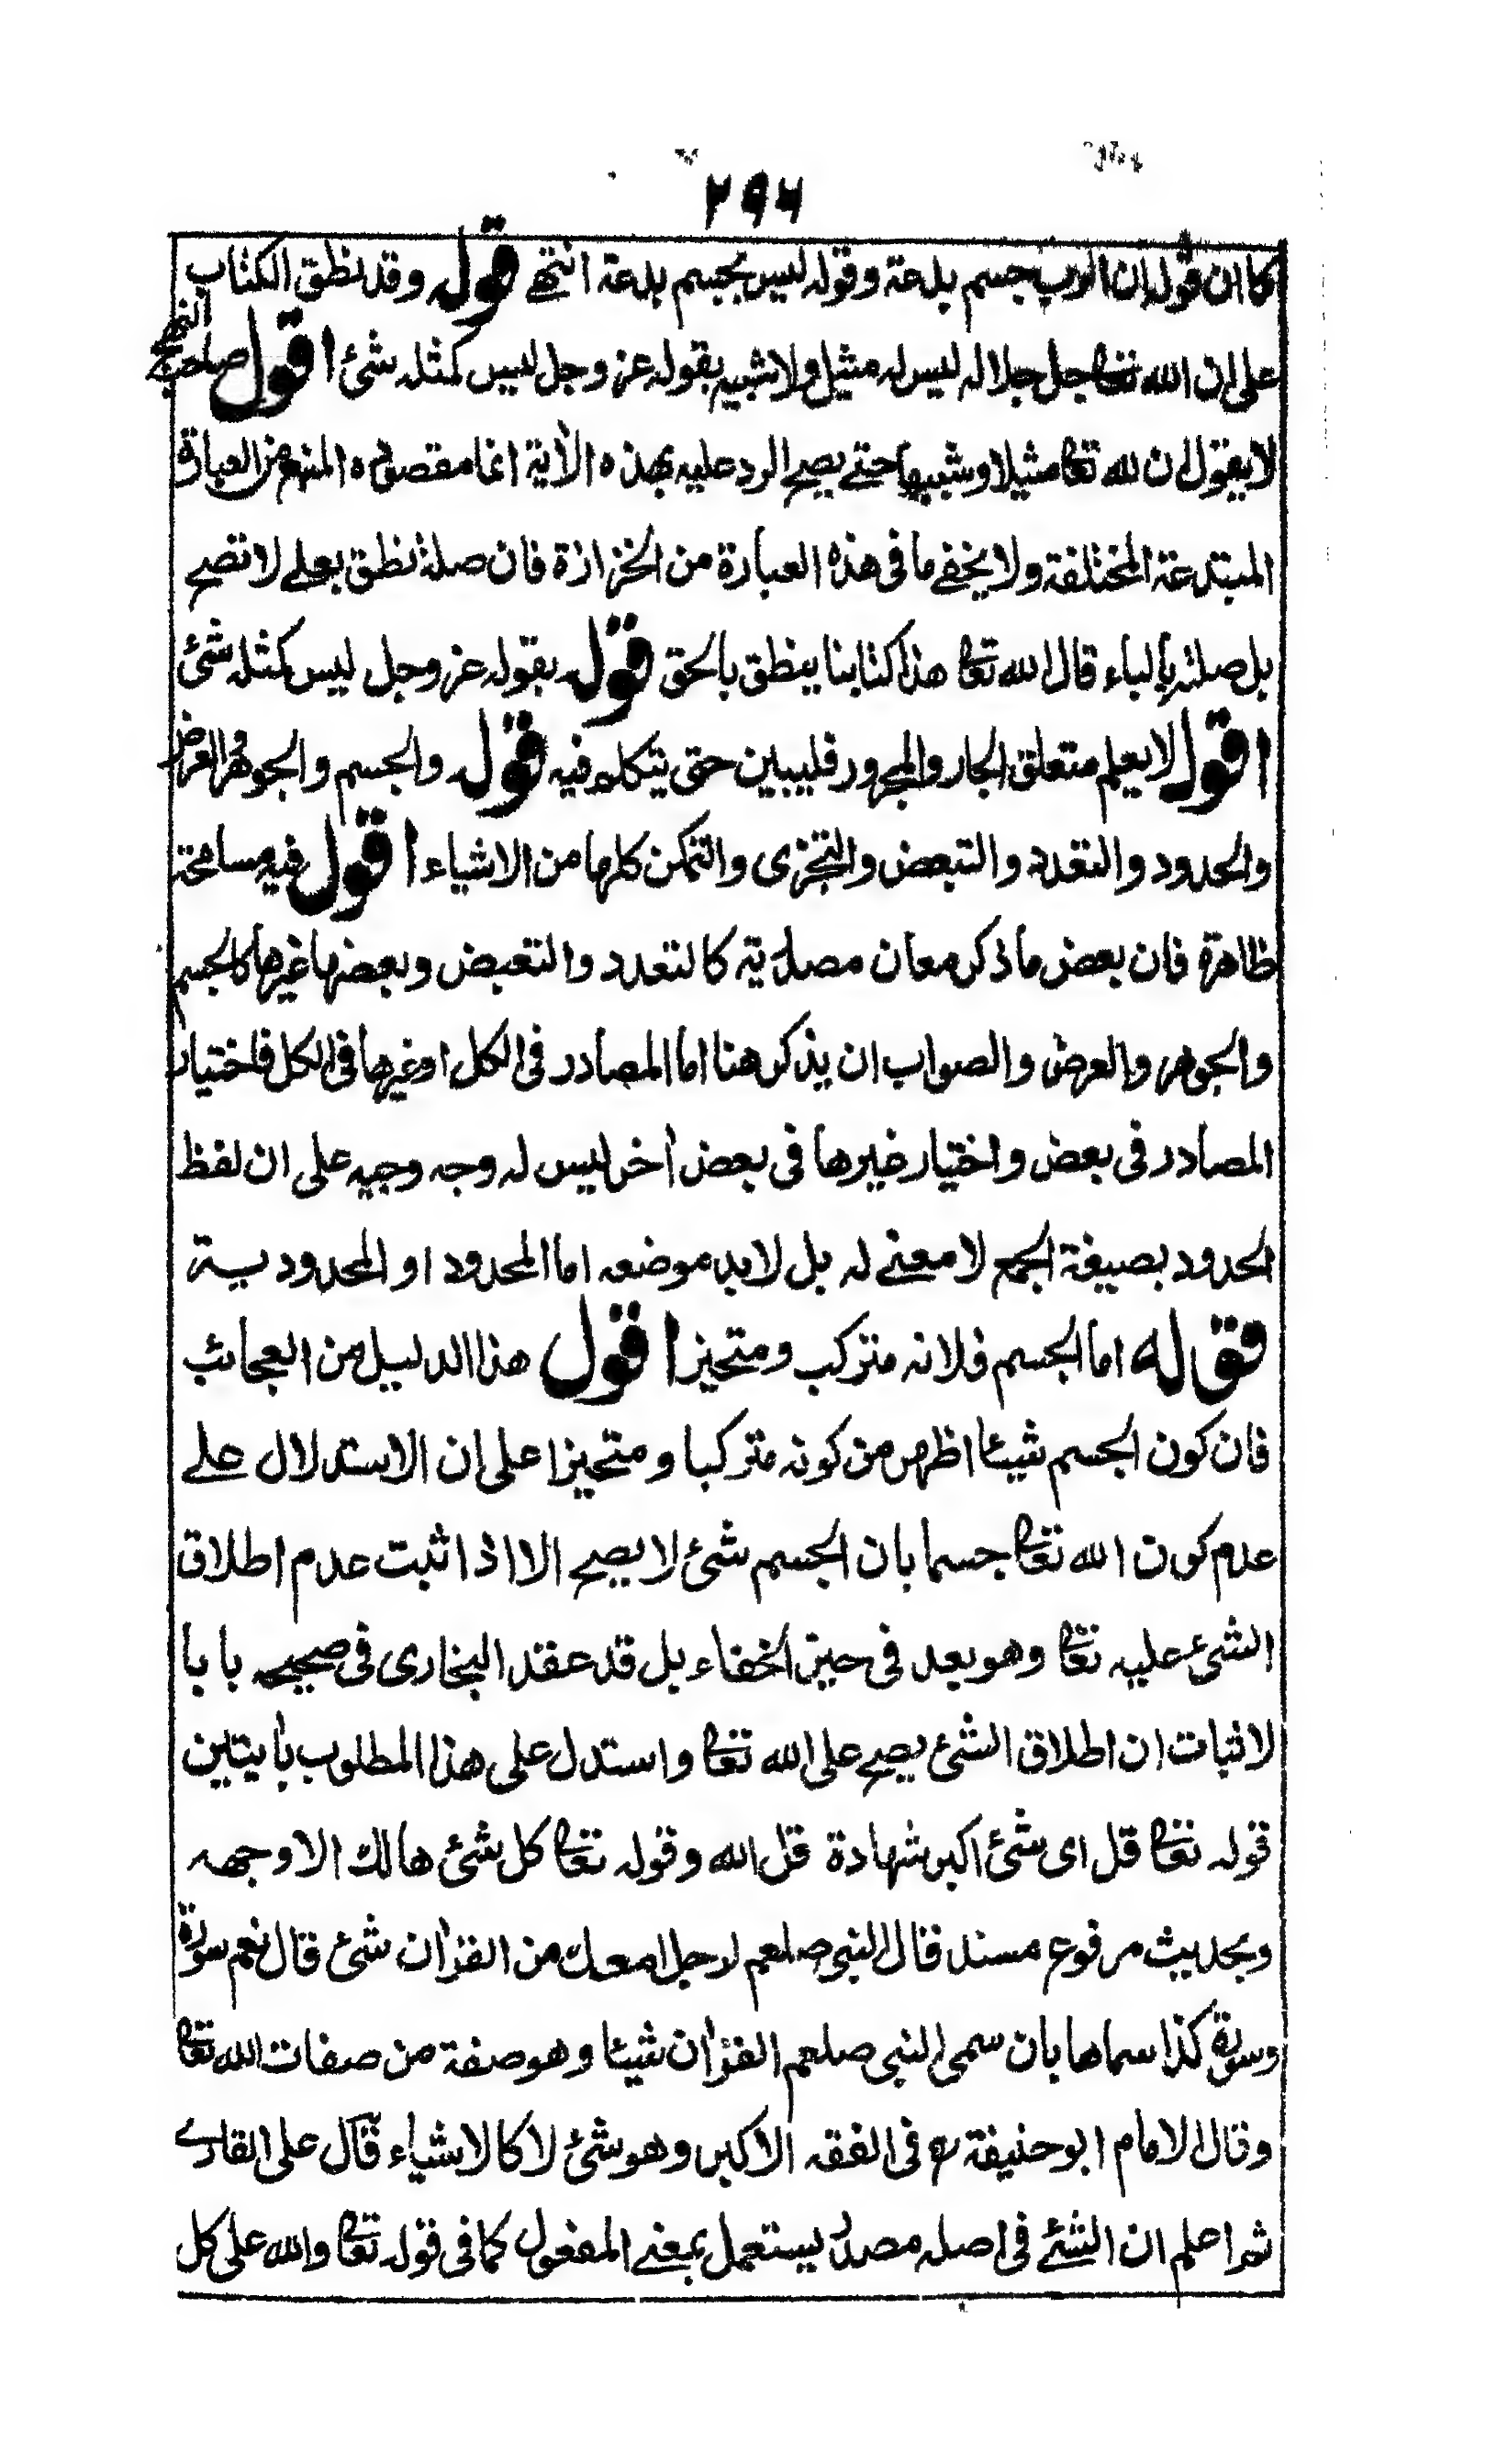 ٢٩٦
كما ان قوله ان الرب جسم بدعة وقوله ليس بجسم بدعة انتهے قوله وقد نطق الكتاب
على ان الله تعالى جل جلاله ليس له مثيل ولا شبيه بقوله عز وجل ليس كمثله شئ اقول صاحب النهج
لا يقول ان لله تعالى مثيلا وشبيها حتے يصح الرد عليه بهذه الاٰية انما مقصوده المنع من العبارة
المبتدعة المختلفة ولا يخفے ما فى هذه العبارة من الخزازة فان صلة نطق بعلے لا تصح
بل صلته بالباء قال الله تعالى هذا كتابنا ينطق بالحق قوله بقوله عز وجل ليس كمثله شئ
اقول لا يعلم متعلق الجار والمجرور فليبين حتى يتكلم فيه قوله والجسم والجوهر والعرض
والحدود والتعدد والتبعض والتجزى والتمكن كلها من الاشياء اقول فيه مسامحة
ظاهرة فان بعض ما ذكر معان مصدرية كالتعدد والتبعض وبعضها غيرها كالجسم
والجوهر والعرض والصواب ان يذكر هنا اما المصادر فى الكل او غيرها فى الكل فاختيار
المصادر فى بعض واختيار غيرها فى بعض اٰخر ليس له وجه وجيه على ان لفظ
الحدود بصيغة الجمع لا معنے له بل لابد موضعه اما المحدود او المحدودية
قوله اما الجسم فلانه متركب ومتحيز اقول هذا الدليل من العجائب
فان كون الجسم شيئا اظهر من كونه متركبا ومتحيزا على ان الاستدلال علے
عدم كون الله تعالى جسما بان الجسم شئ لا يصح الا اذا ثبت عدم اطلاق
الشئ عليه تعالى وهو بعد فى حيز الخفاء بل قد عقد البخارى فى صحيحه بابا
لاثبات ان اطلاق الشئ يصح على الله تعالى واستدل على هذا المطلوب باٰيتين
قوله تعالى قل اى شئ اكبر شهادة قل الله وقوله تعالى كل شئ هالك الا وجهه
وبحديث مرفوع مسند قال النبى صلعم لرجل امعك من القراٰن شئ قال نعم سورة
وسورة كذا سماها بان سمى النبى صلعم القراٰن شيئا وهو صفة من صفات الله تعالى
وقال الامام ابو حنيفة رح فى الفقه الاكبر وهو شئ لا كالاشياء قال على القارے
ثم اعلم ان الشئے فى اصله مصدر يستعمل بمعنے المفعول كما فى قوله تعالى والله على كل